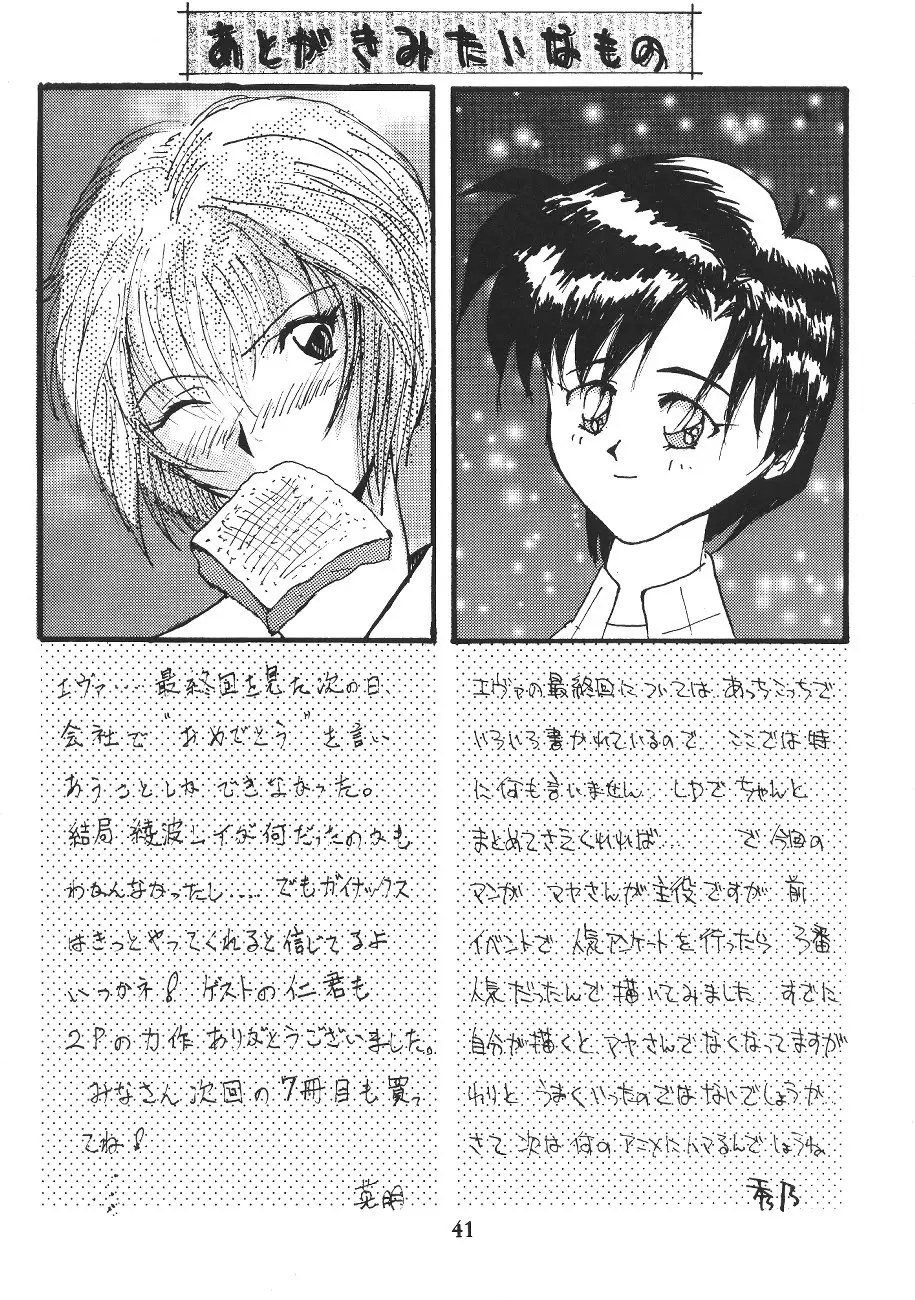 あとがきみたいなもの
エヴァ‥‥最終回を見た次の日、
会社で〝おめでとう〟を言い
あうことしかできなかった。
結局 綾波レイが何だったのかも
わかんなかったし‥‥でもガイナックス
はきっとやってくれると信じてるよ
いつかネ! ゲストの仁君も
2Pの力作ありがとうございました。
みなさん次回の7冊目も買っ
てね!
英明
エヴァの最終回については あっちこっちで
いろいろ書かれているので ここでは特
に何も言いません LDで ちゃんと
まとめてさえくれれば‥‥ で 今回の
マンガ マヤさんが主役ですが 前
イベントで 人気アンケートを行ったら 3番
人気だったんで 描いてみました すでに
自分が描くと マヤさんでなくなってますが
わりと うまくいったのではないでしょうか
さて 次は 何のアニメにハマるんでしょうね
秀乃
41